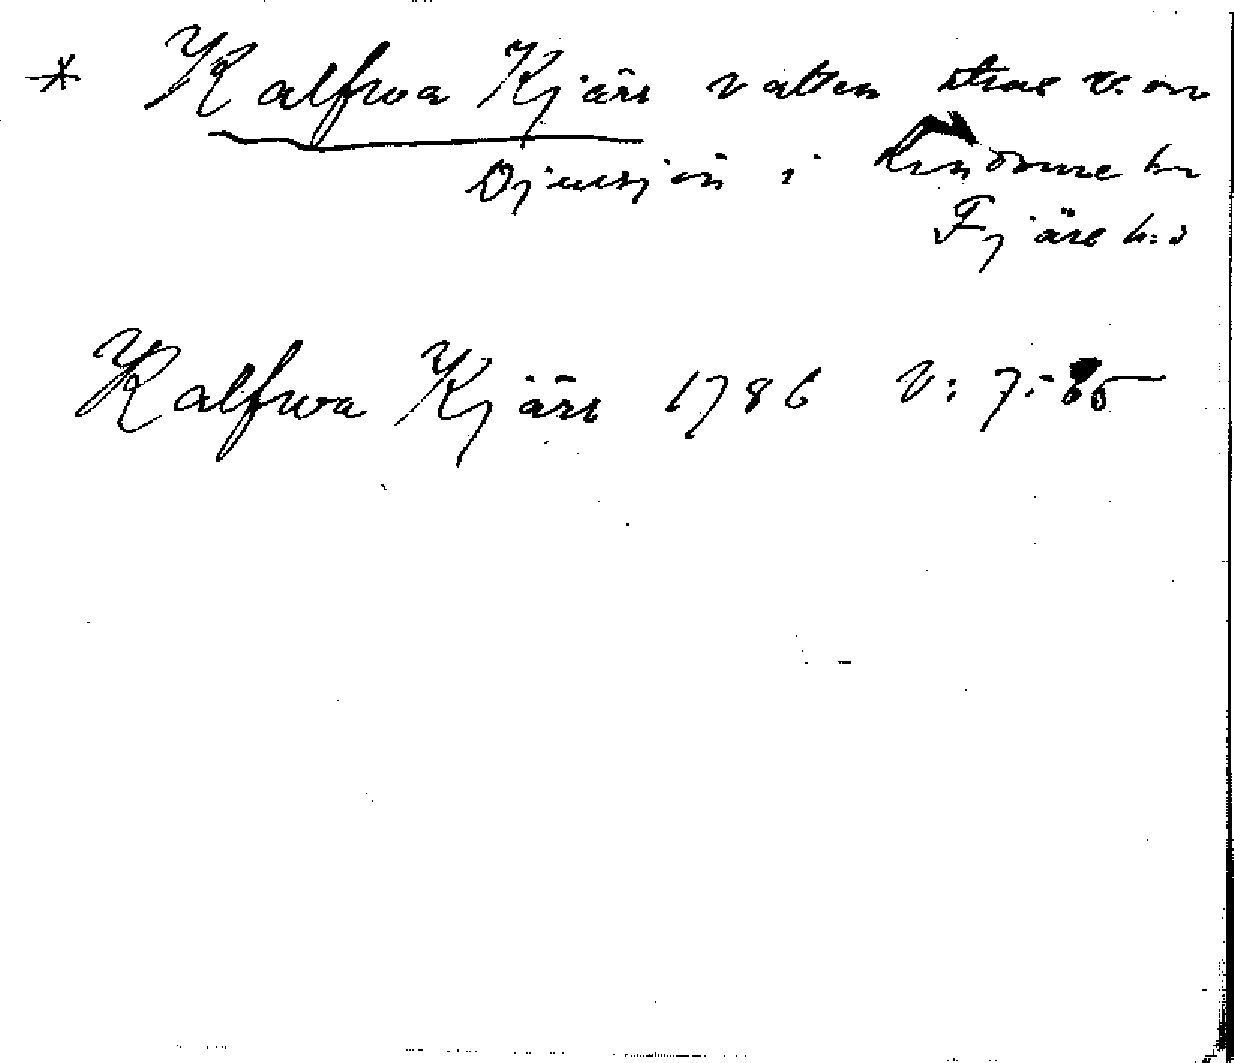 * Kalfwa Kjärr vatten strax v. om
Djursjön i Lindome sn
Fjäre h:d
Kalfwa Kjärr 1786 V: 7:-